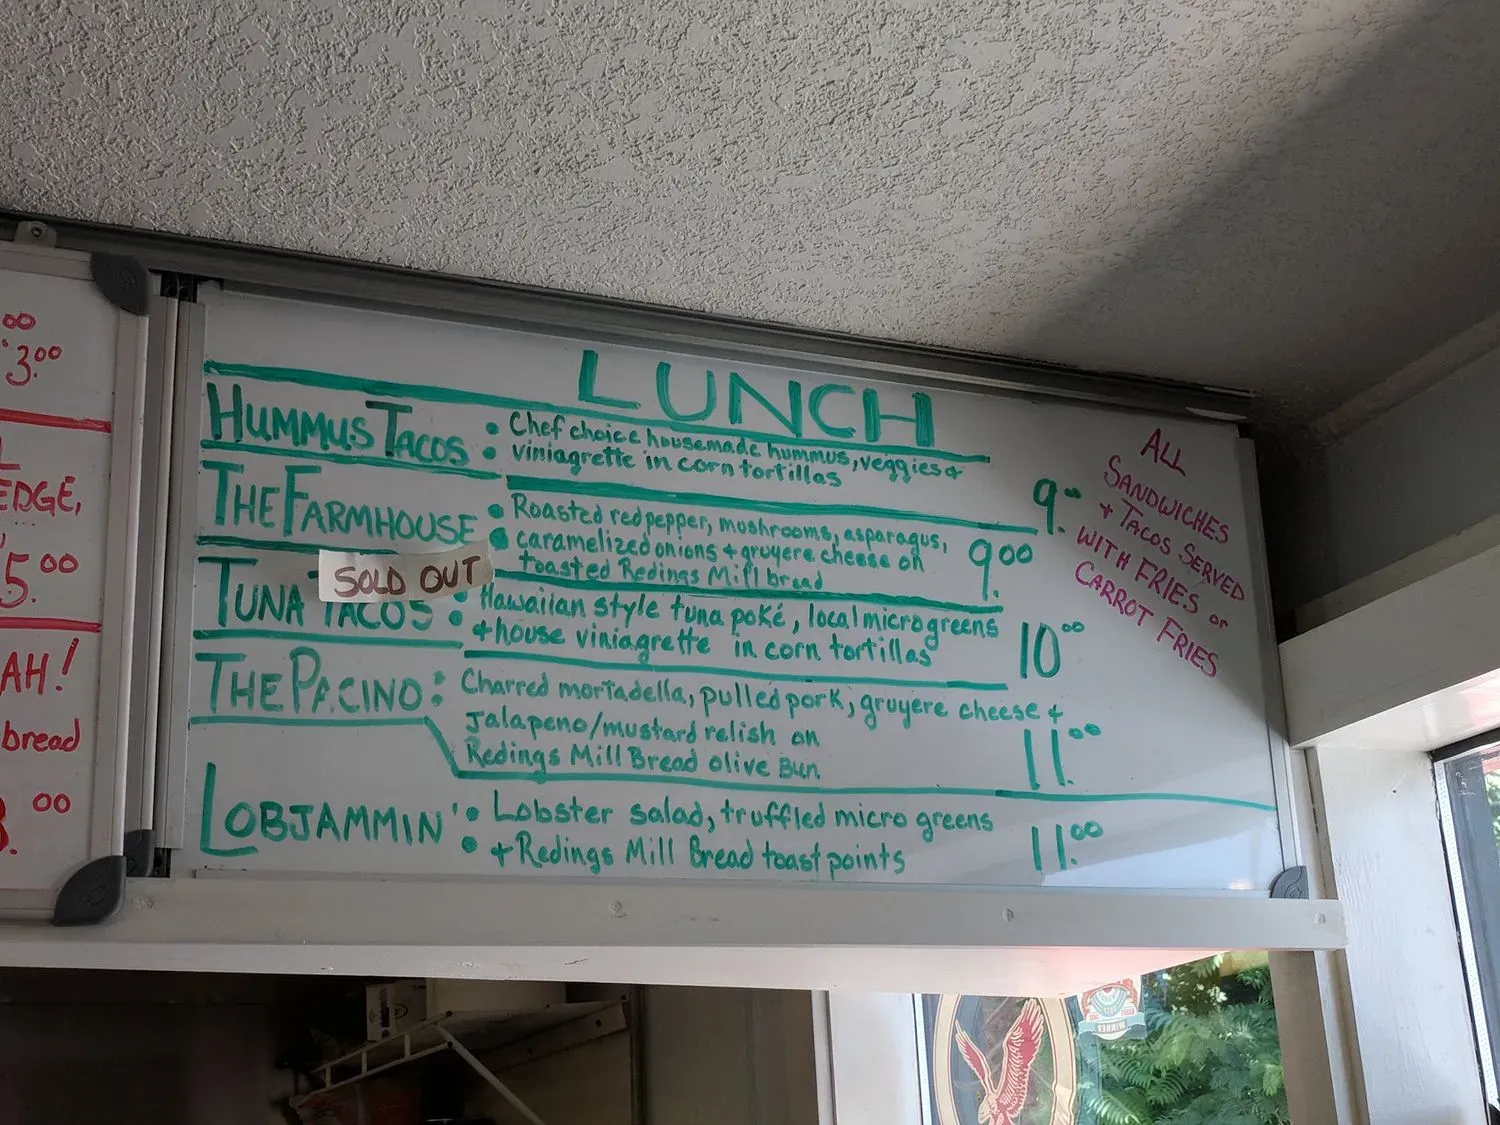 00
3.00
L
EDGE,
5.00
AH!
bread
3.00
LUNCH
HUMMUS TACOS • Chef choice housemade hummus, veggies +
• viniagrette in corn tortillas
9.00
THE FARMHOUSE • Roasted red pepper, mushrooms, asparagus,
• caramelized onions + gruyere cheese on
toasted Redings Mill bread
9.00
SOLD OUT
TUNA TACOS • Hawaiian style tuna poké, local microgreens
• + house viniagrette in corn tortillas
10.00
THE PACINO: Charred mortadella, pulled pork, gruyere cheese +
Jalapeno/mustard relish on
Redings Mill Bread olive Bun
11.00
LOBJAMMIN' • Lobster salad, truffled micro greens
• + Redings Mill Bread toast points
11.00
ALL
SANDWICHES
+ TACOS SERVED
WITH FRIES or
CARROT FRIES